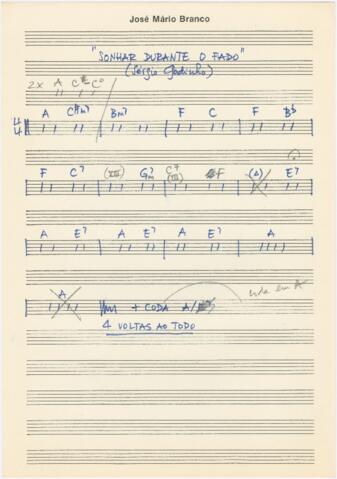 José Mário Branco
"SONHAR DURANTE O FADO"
(Sérgio Godinho)
2x A C#-C°
4/4 A C#m7 Bm7 F C F Bb
F C7 (III) Gm7 C7 (III) F (A) E7
A E7 A E7 A E7 A
A + CODA A/
4 VOLTAS AO TODO